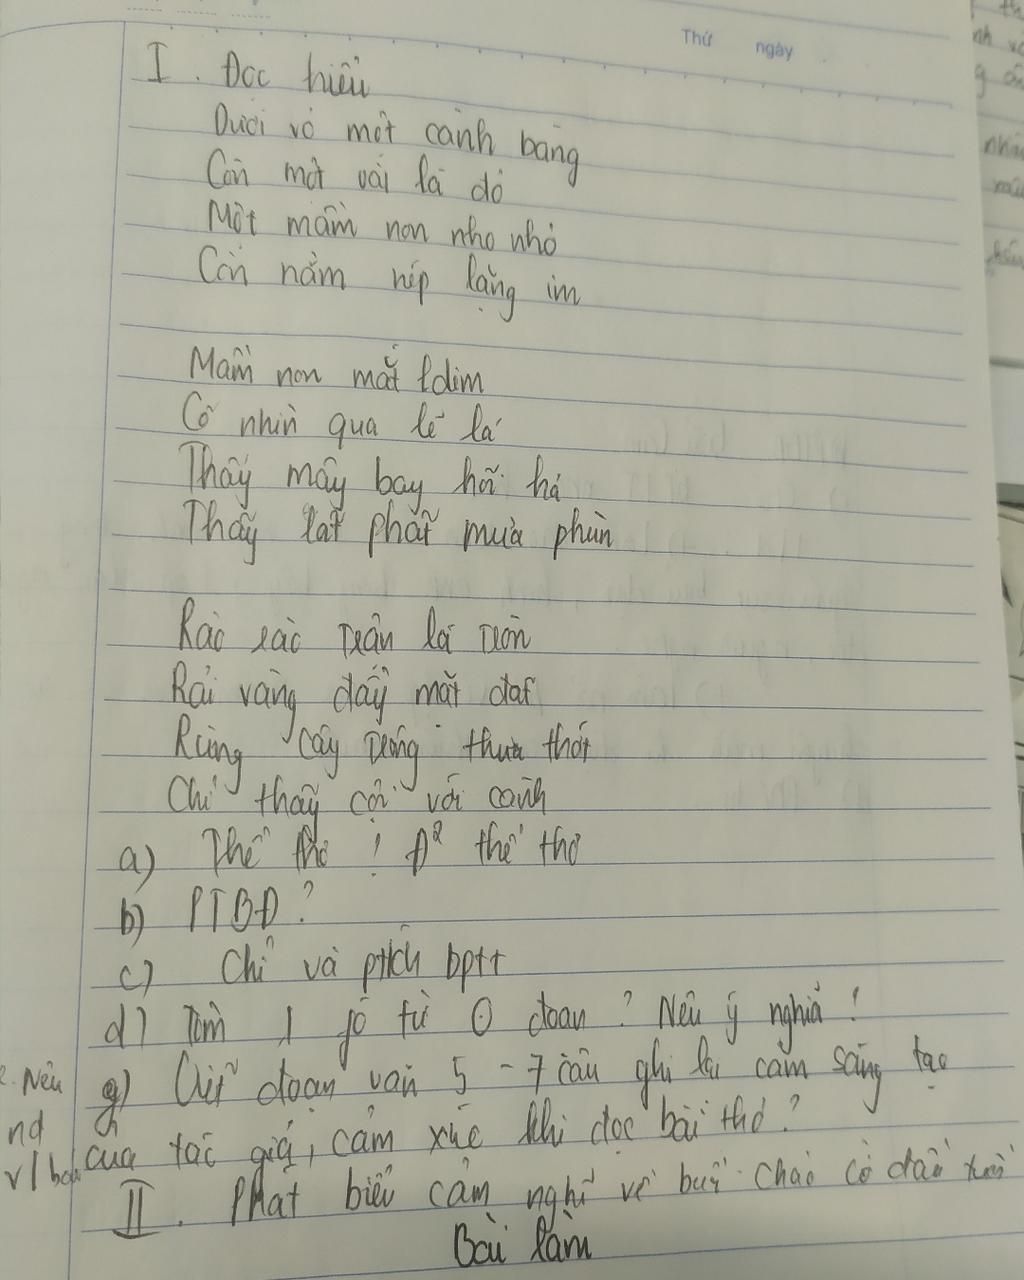 Thứ ngày
I. Đọc hiểu
Dưới vỏ một cành bàng
Còn một vài lá đỏ
Một mầm non nho nhỏ
Còn nằm nép lặng im
Mầm non mắt ldim
Cố nhìn qua kẽ lá
Thấy mây bay hối hả
Thấy lất phất mưa phùn
Rào rào trận lá tròn
Rải vàng đầy mặt đất
Rừng cây trông thưa thớt
Chỉ thấy cội với cành
a) Thể thơ ! Đ² thể thơ
b) PTBĐ?
c) Chỉ và ptích bptt
d) Tìm 1 số từ đoạn ? Nêu ý nghĩa !
2. Nêu
nd
v/ bài
g) Viết đoạn văn 5 - 7 câu ghi lại cảm sáng tạo
của tác giả, cảm xúc khi đọc bài thơ?
II. Phát biểu cảm nghĩ về buổi chào cờ đầu tuần
Bài làm